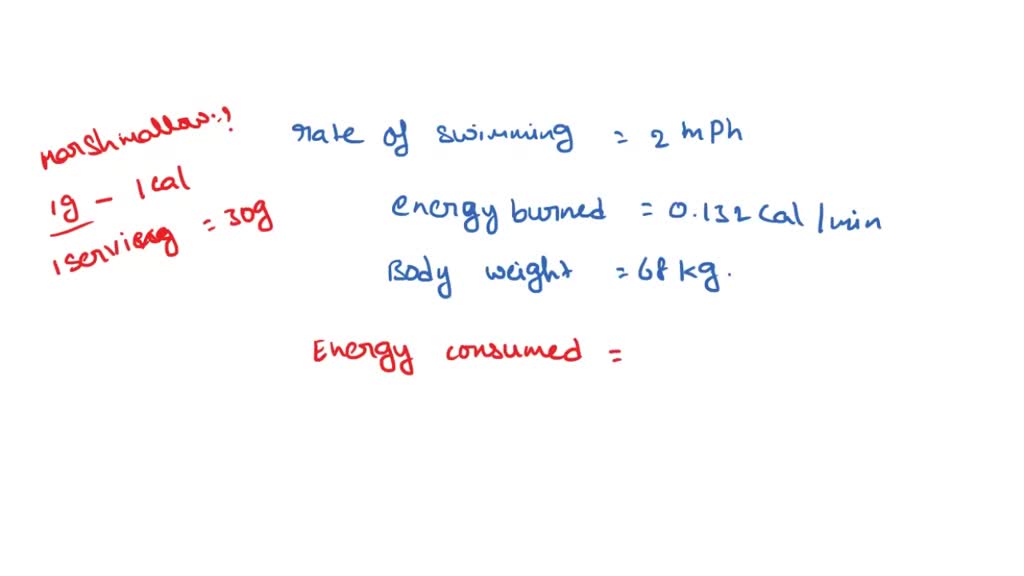 marshmallow:?
1g - 1 cal
1 serving = 30g
rate of swimming = 2 mPh
energy burned = 0.132 Cal/min
Body weight = 68 kg.
Energy consumed =